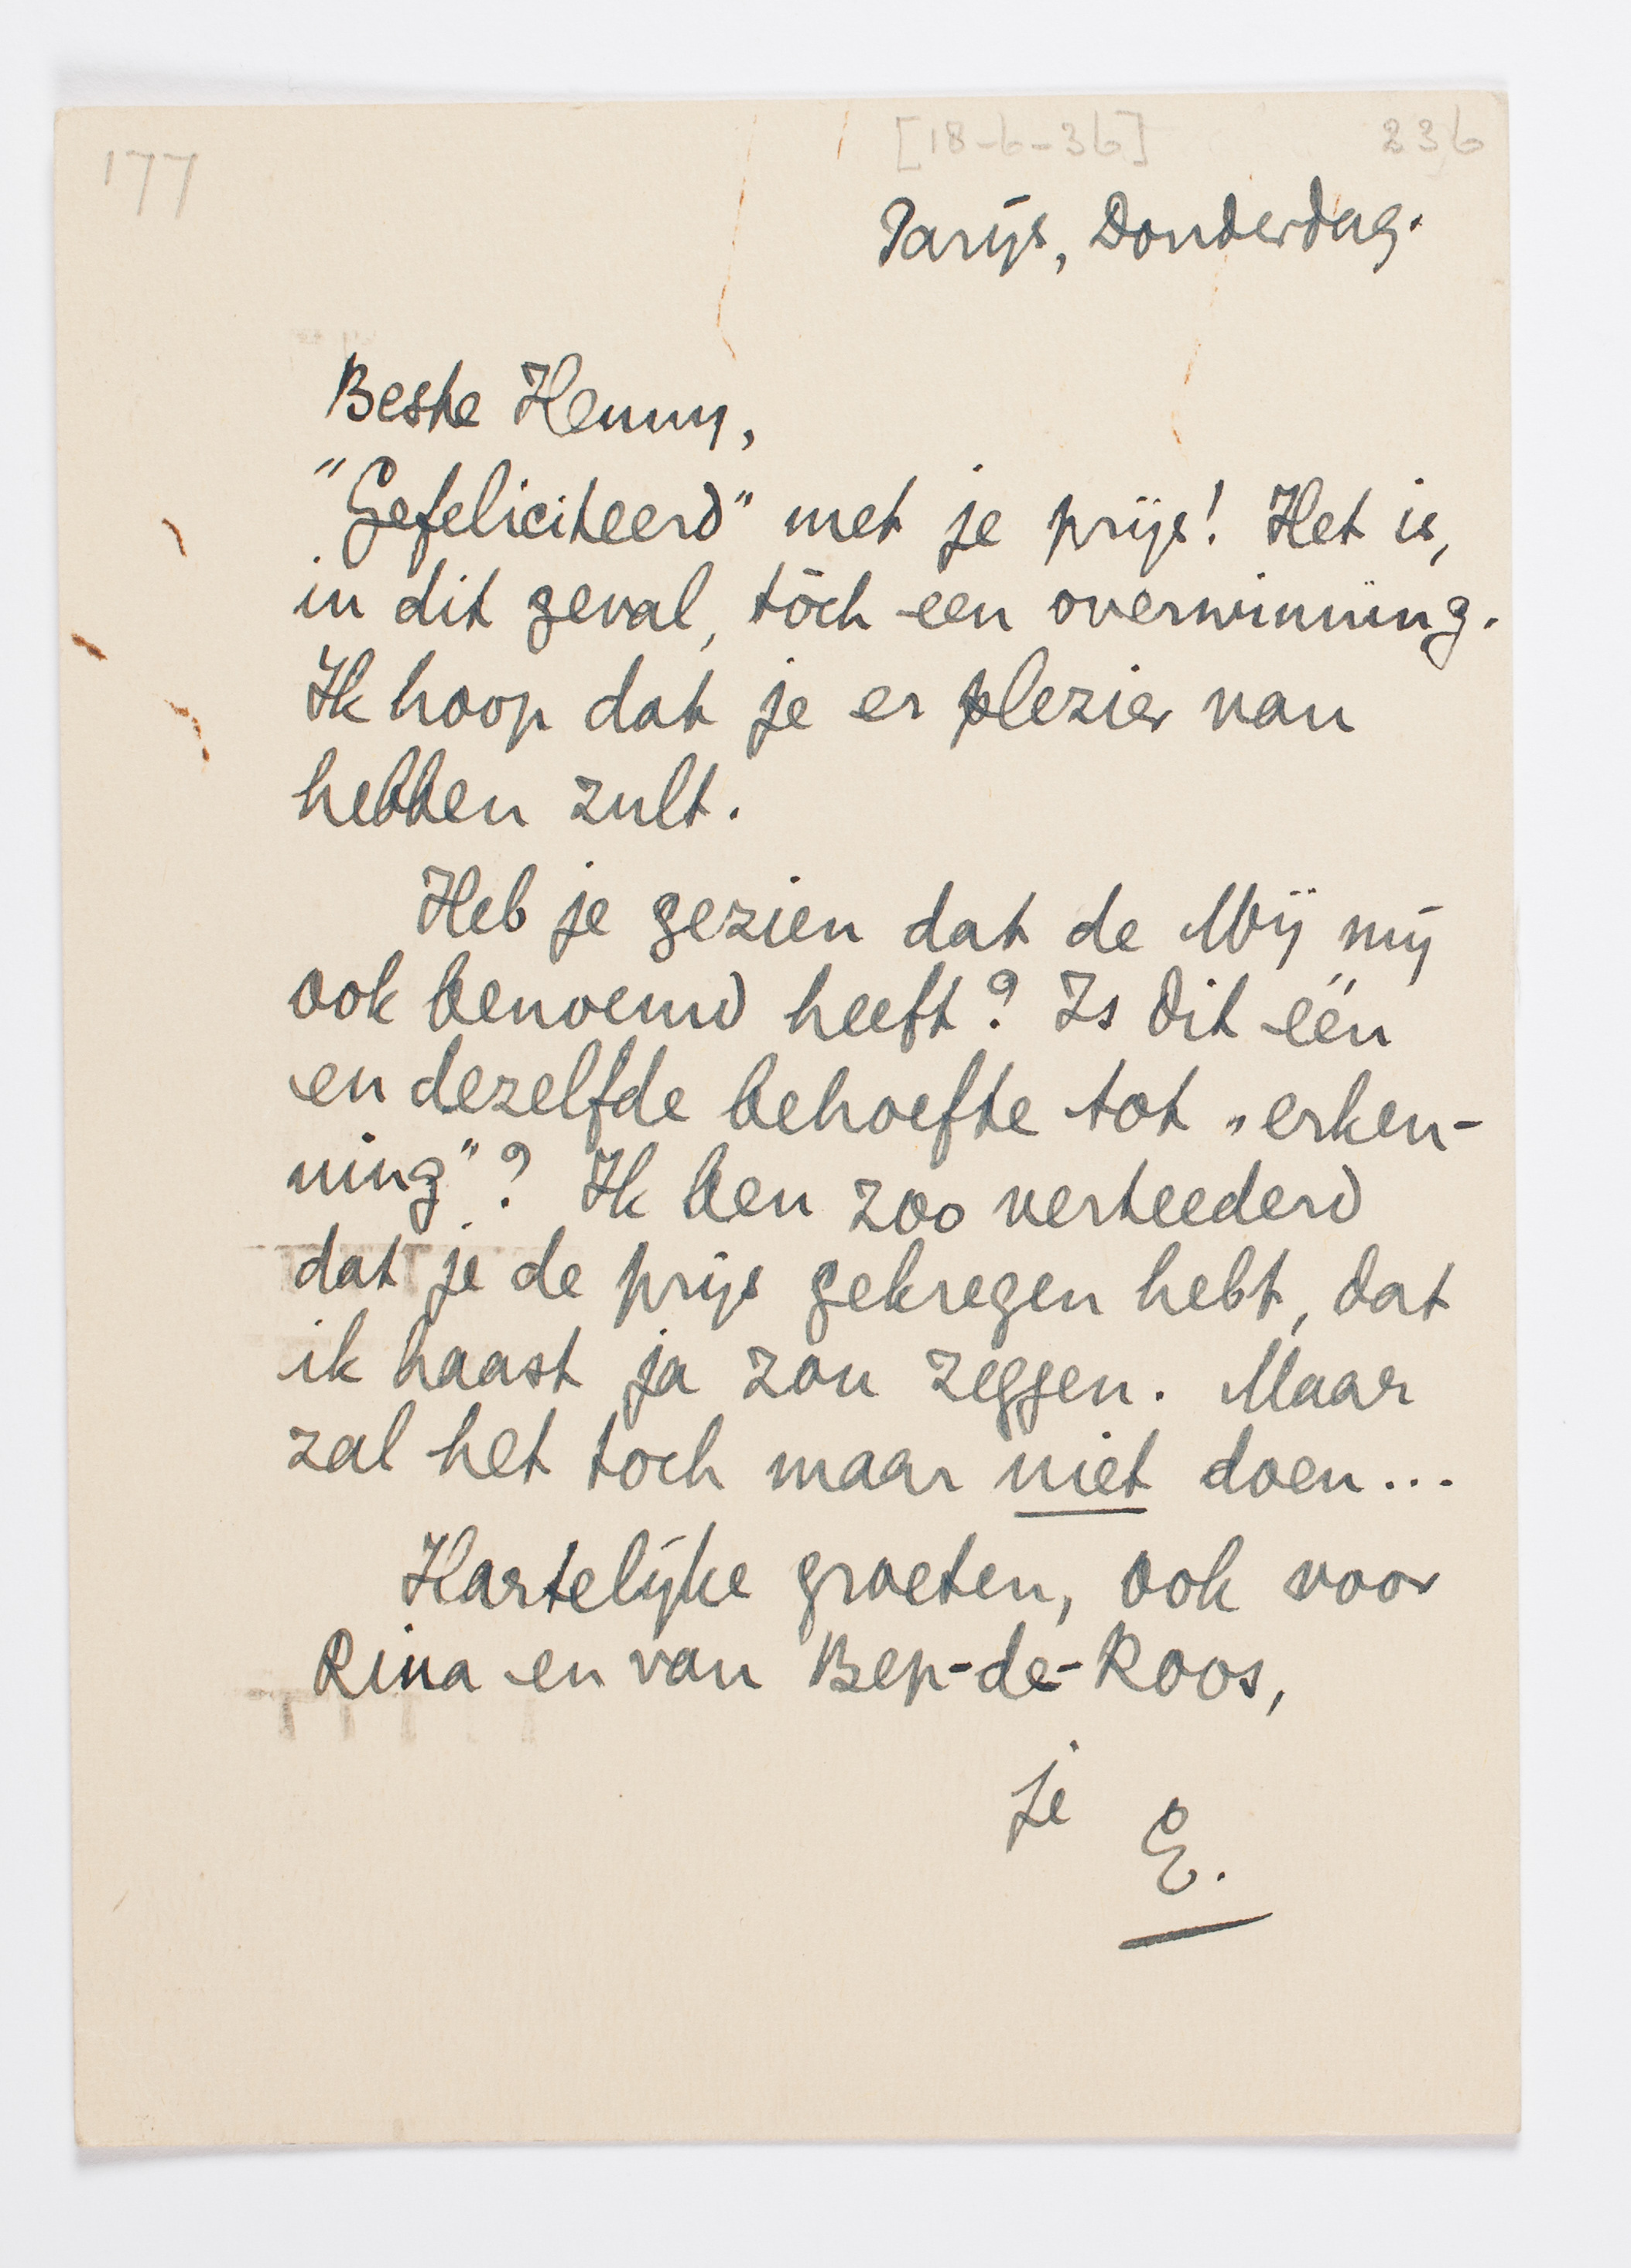 177
[18-6-36]
236
Parijs, Donderdag.
Beste Henny,
"Gefeliciteerd" met je prijs! Het is,
in dit geval, tòch een overwinning.
Ik hoop dat je er plezier van
hebben zult.
Heb je gezien dat de Mij mij
ook benoemd heeft? Is dit één
en dezelfde behoefte tot „erken-
ning"? Ik ben zoo verteederd
dat je de prijs gekregen hebt, dat
ik haast ja zou zeggen. Maar
zal het toch maar niet doen...
Hartelijke groeten, ook voor
Rina en van Bep-de-Roos,
je
E.